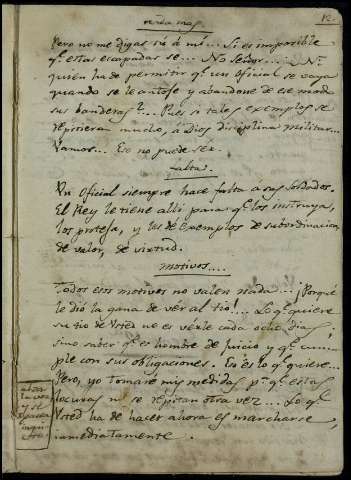 12.
vida mas.
Pero no me digas tú á mí... Si es imposible
q.e estas escapadas se... No Señor...... Ni
quién ha de permitir q.e un oficial se vaya
quando se le antoje y abandone de ese modo
sus banderas?... Pues si tales exemplos se
repitieran mucho, á Dios disciplina militar...
Vamos... Eso no puede ser.
falta.
Un Oficial siempre hace falta á sus Soldados.
El Rey le tiene alli para q.e los instruya,
los proteja, y les dé exemplos de subordinacion,
de valor, de virtud.
motivos....
Todos esos motivos no valen nada... ¡Porque
le dió la gana de vér al tio!... Lo q.e quiere
su tio de Usted no es verle cada ocho dias,
sino saber q.e es hombre de juicio y q.e cum
ple con sus obligaciones. Eso es lo q.e quiere...
Pero, yo tomaré mis medidas p.a q.e estas
locuras no se repitan otra vez... Lo q.e
Usted ha de hacer ahora es marcharse,
inmediatamente.
alza
la voz
y se
pasea
inqui
eto.